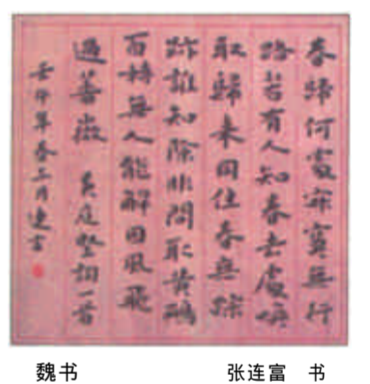 春歸何處寂寞無行
路若有人知春去處喚
取歸來同住春無踪
跡誰知除非問取黄鸝
百囀無人能解因風飛
過薔薇 黄庭堅詞一首
壬午年春三月連書
魏书 张连富 书